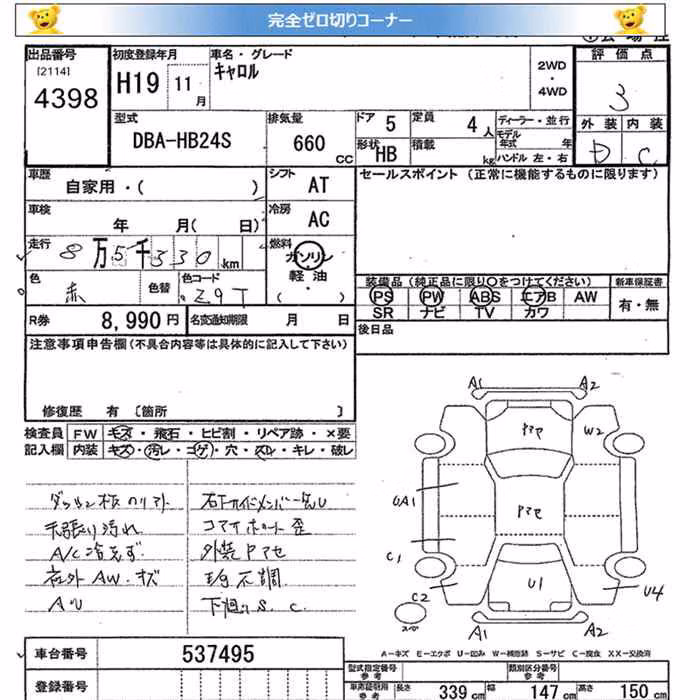 完全ゼロ切りコーナー
出品番号
[2114]
4398
初度登録年月
H19 11 月
車名・グレード
キャロル
2WD
・
4WD
評価点
3
外装 内装
D C
型式
DBA-HB24S
排気量
660 CC
ドア 5
定員 4 人
形状 HB
積載 kg
ディーラー・並行
モデル年式 年
ハンドル 左・右
車歴
自家用・( )
シフト AT
セールスポイント (正常に機能するものに限ります)
車検
年 月( 日)
冷房 AC
走行
8万5千330 km
燃料
ガソリン
・
軽油
( )
色
赤
色替
色コード
Z9T
装備品 (純正品に限り○をつけてください)
新車保証書
PS PW ABS エアB AW
SR ナビ TV カワ
有・無
R券 8,990円
名変通知期限 月 日
後日品
注意事項申告欄 (不具合内容等は具体的に記入して下さい)
修復歴 有 [箇所 ]
検査員
記入欄
FW キズ・飛石・ヒビ割・リペア跡・×要
内装 キズ・汚レ・コゲ・穴・スレ・キレ・破レ
天張り汚れ
A/C冷えず
社外AW・キズ
AU
コアサポート歪
外装Pアセ
下廻りS、C
A1 A2
Pアセ
W2
UA1
Pアセ
C1
C2
U1
U4
スペ
A1 A2
A-キズ E-エクボ U-凹み W-補修跡 S-サビ C-腐食 XX-交換済
車台番号 537495
登録番号
型式指定番号 参考
類別区分番号 参考
車両証明用 参考
長さ 339 cm
幅 147 cm
高さ 150 cm